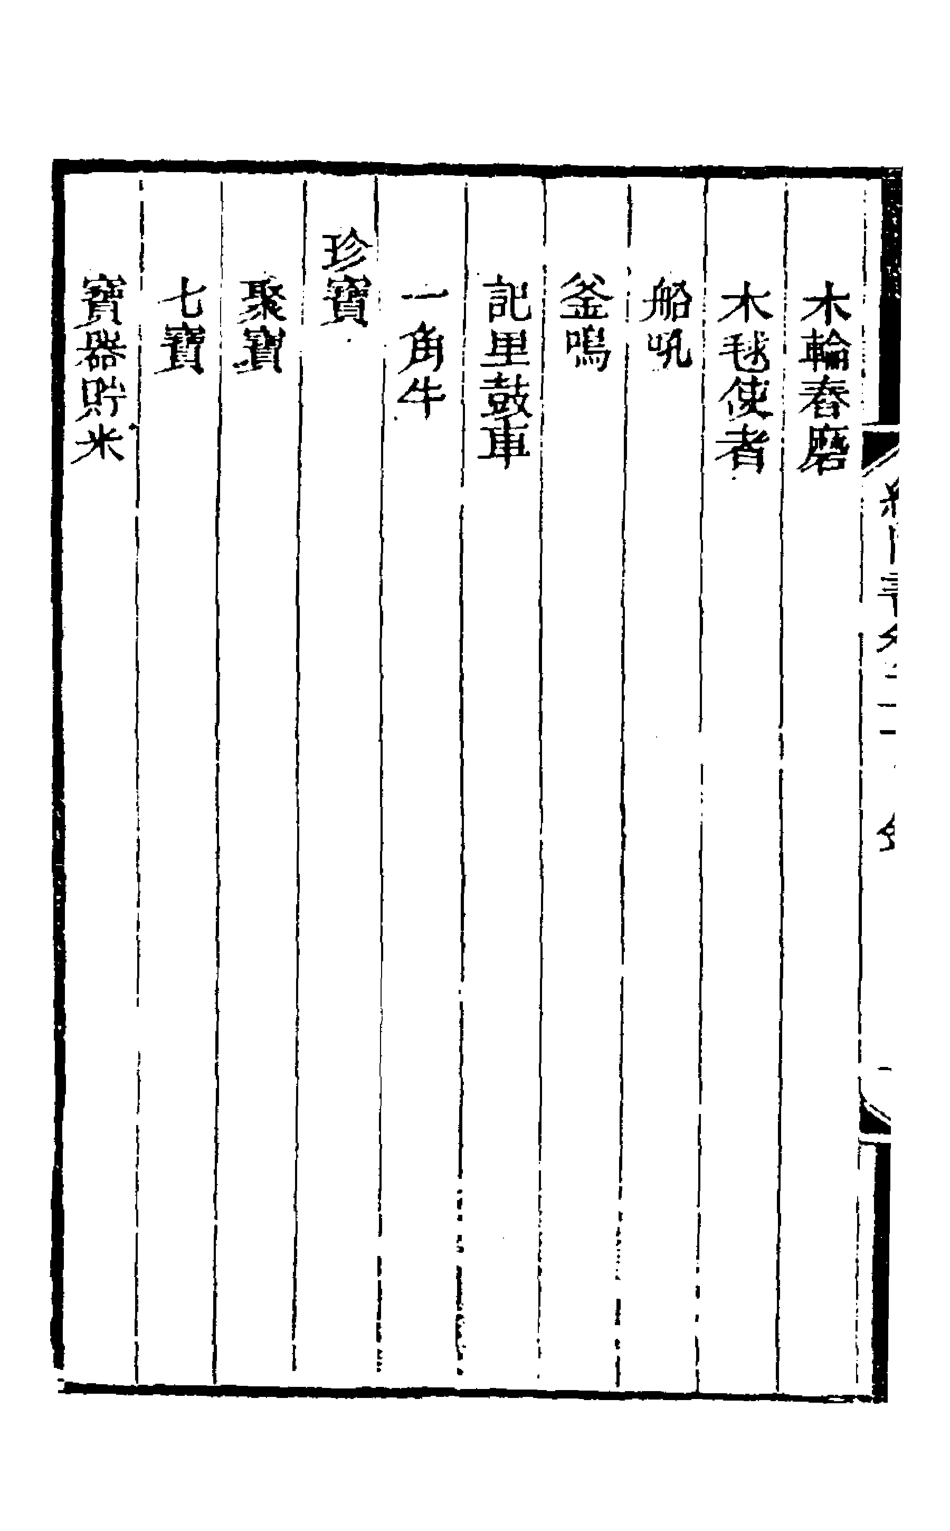 木輪舂磨
木毬使者
船吼
釜鳴
記里鼓車
一角牛
珍寶
聚寶
七寶
寶器貯米